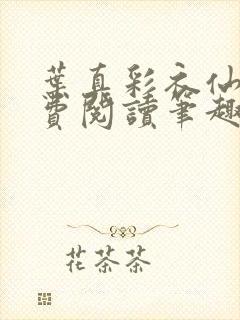 葉真彩衣仙
費閱讀筆趣
花茶茶